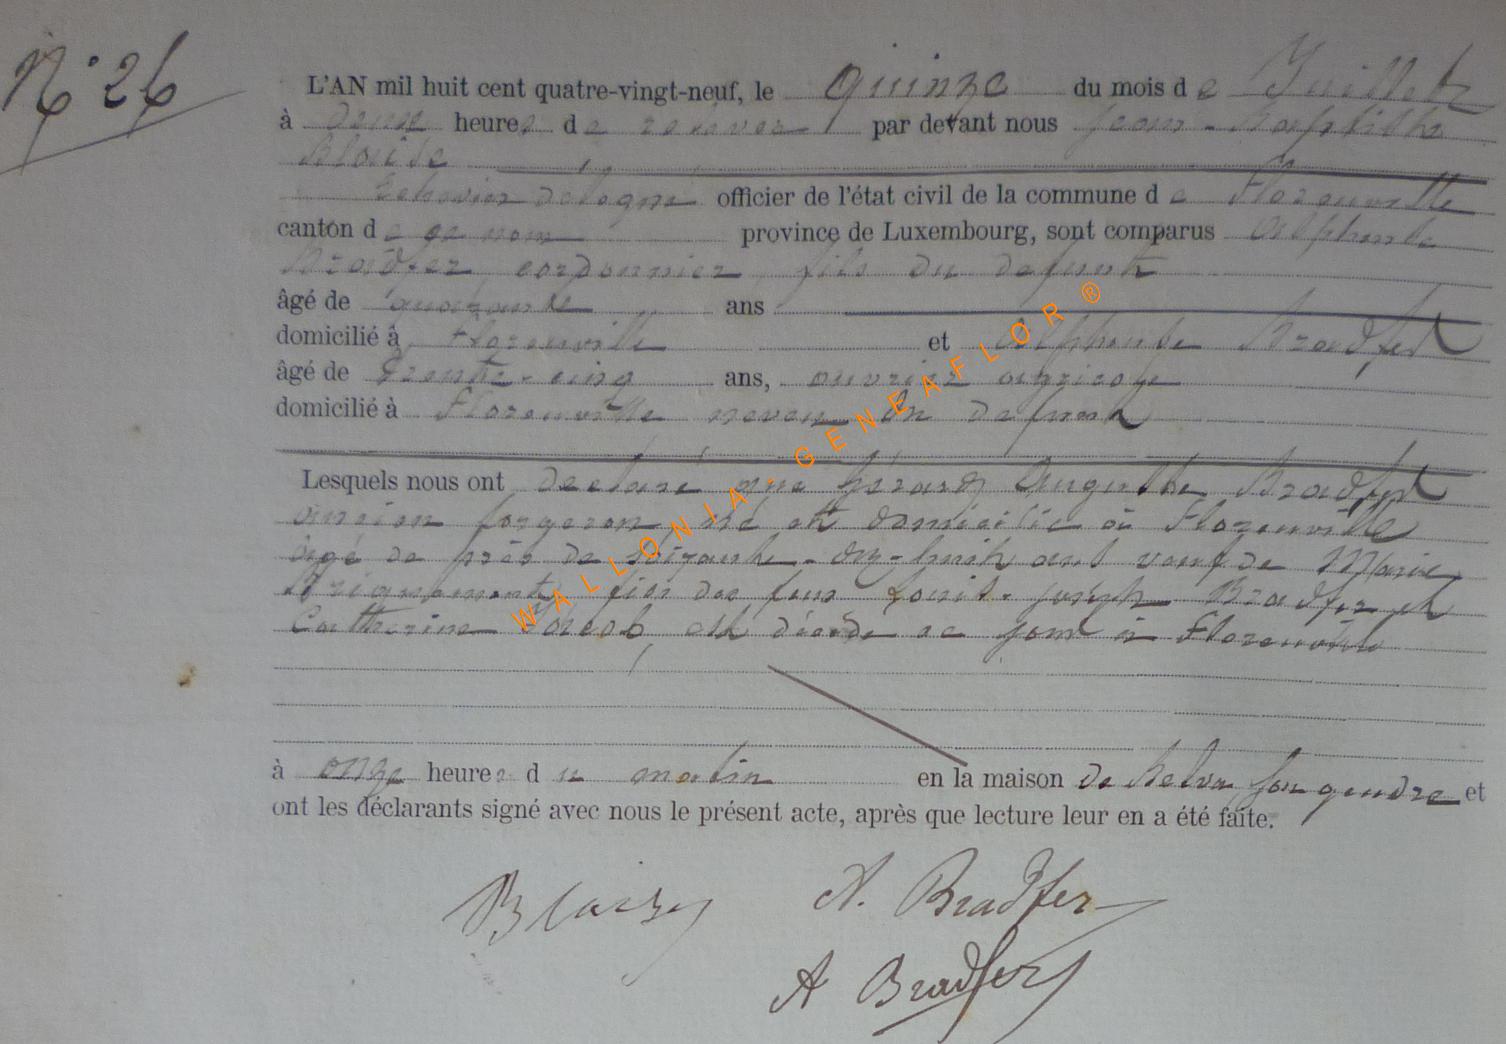 N° 26
L'AN mil huit cent quatre-vingt-neuf, le quinze du mois de Juillet
à heures de par devant nous Jean-Baptiste
Blaise
Echevin délégué officier de l'état civil de la commune de Florenville
canton de ce nom province de Luxembourg, sont comparus Alphonse
Bradfer cordonnier, fils du defunt
âgé de quarante ans
domicilié à Florenville et Alphonse Bradfer
âgé de trente-cinq ans, ouvrier agricole
domicilié à Florenville neveu du defunt
Lesquels nous ont declaré que Gérard Auguste Bradfer
ancien forgeron, né et domicilié à Florenville
âgé de près de soixante-dix-huit ans veuf de Marie
fils des feus Louis-Joseph Bradfer et
Catherine Jacob, est décédé ce jour à Florenville
à onze heures du matin en la maison de son gendre et
ont les déclarants signé avec nous le présent acte, après que lecture leur en a été faite.
Blaise A. Bradfer
A Bradfer
WALLONIA-GENEAFLOR ®